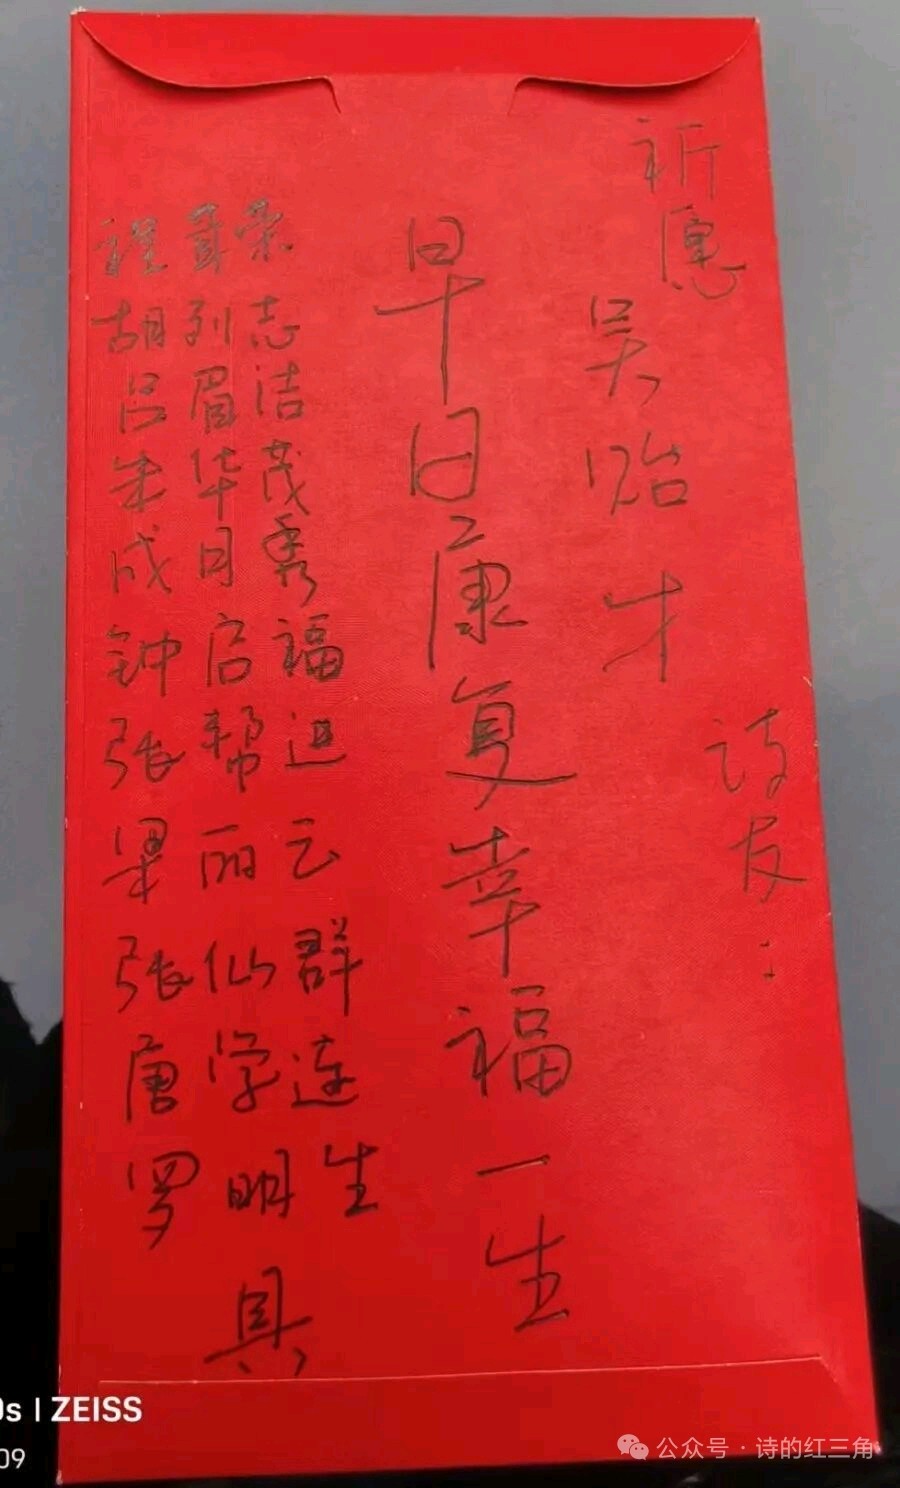 祈愿
吴贻才
诗友：
早日康复幸福一生
程
胡列志
吕眉洁
朱华茂
成日秀
钟启福
张帮进
梁丽云
张仙群
唐学连
罗明生
具
0s | ZEISS
09
公众号·诗的红三角